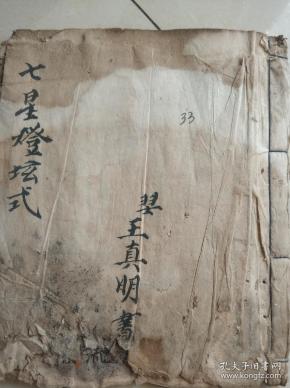 七星燈坛式
33
王真明書
孔夫子旧书网